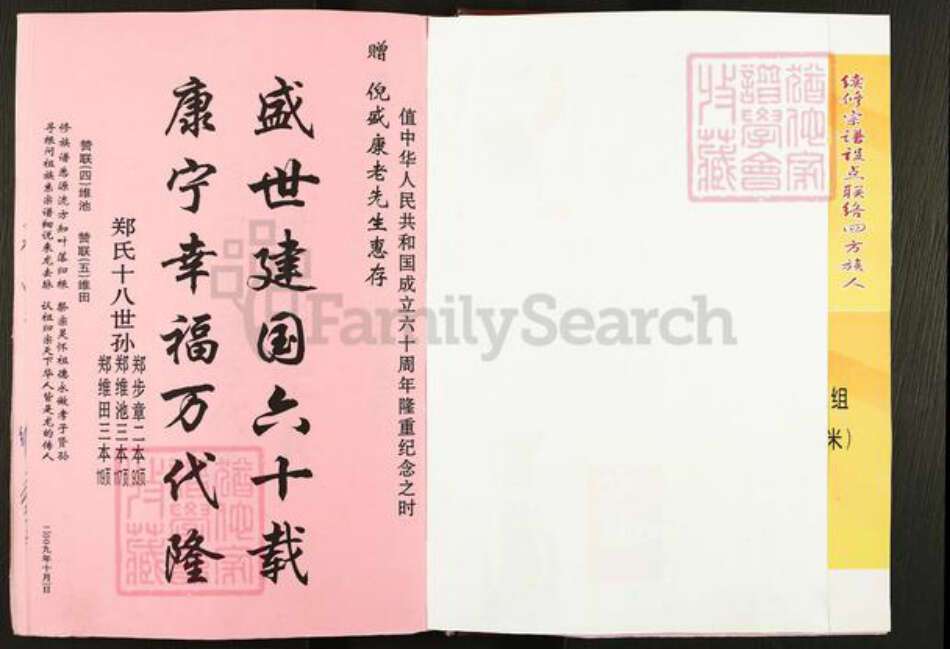 赠 倪盛康老先生惠存
值中华人民共和国成立六十周年隆重纪念之时
盛世建国六十载
康宁幸福万代隆
郑氏十八世孙
郑步章二本93页
郑维池三本117页
郑维田三本119页
赞联(四)维池 赞联(五)维田
修族谱悉源流方知叶落归根 祭宗灵怀祖德永做孝子贤孙
寻根问祖族系宗谱细说来龙去脉 认祖归宗天下华人皆是龙的传人
二00九年十月一日
续修宗谱设点联络四方族人
组
米)
犹他家谱学会收藏
犹他家譜學會收藏
FamilySearch